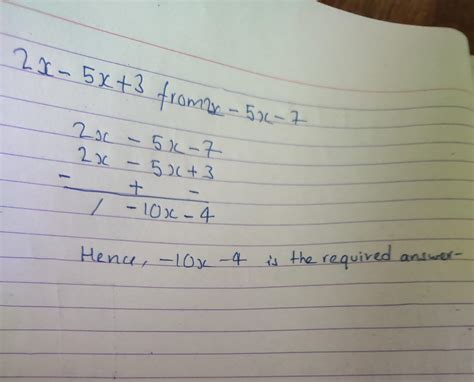 2x - 5x + 3 from 2x - 5x - 7
2x - 5x - 7
2x - 5x + 3
- + -
/ -10x - 4
Hence, -10x - 4 is the required answer-